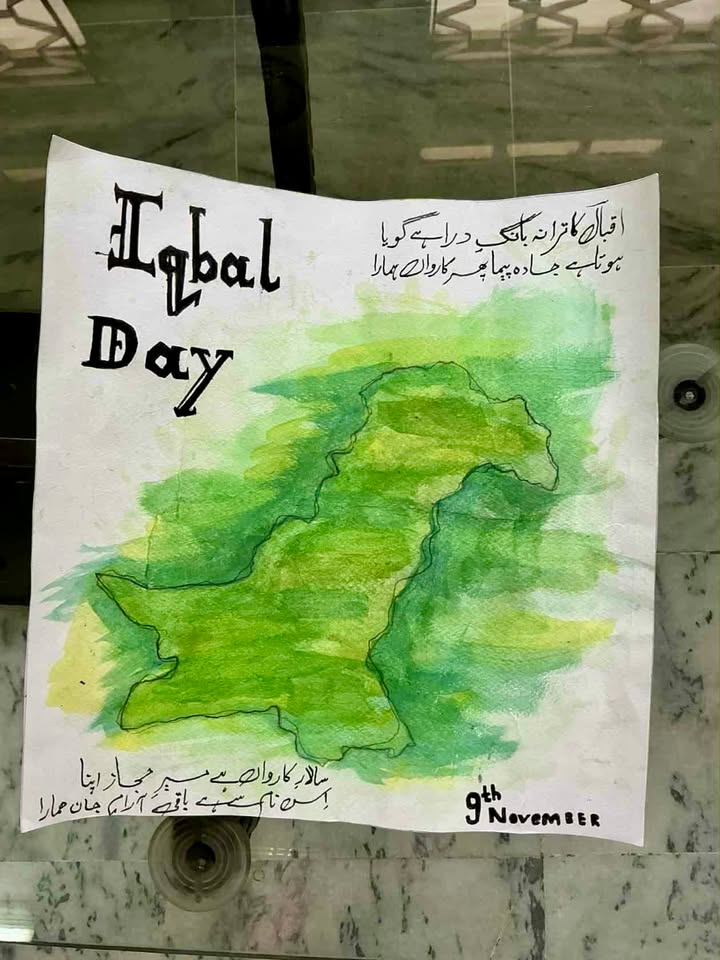 Iqbal
Day
اقبالؔ کا ترانہ بانگِ درا ہے گویا
ہوتا ہے جادہ پیما پھر کارواں ہمارا
سالارِ کارواں ہے میرِ حجاز اپنا
اس نام سے ہے باقی آرامِ جاں ہمارا
9th
November